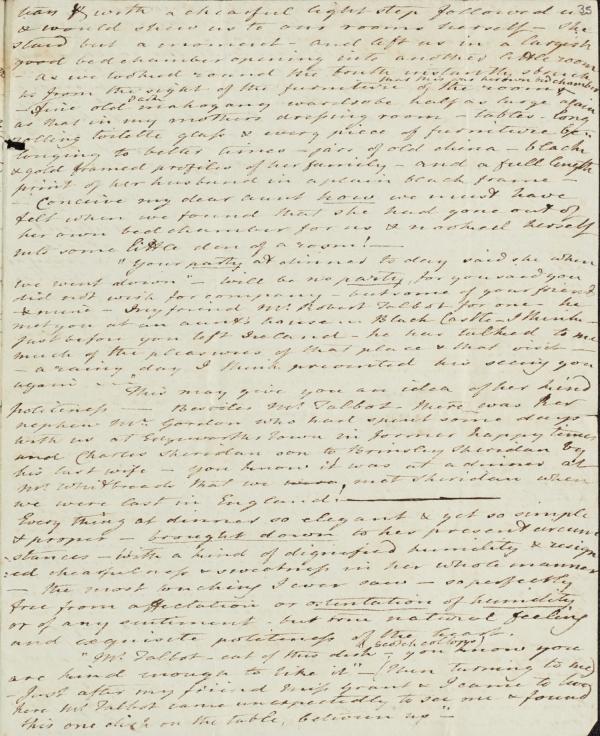 35
with a chearful light step followed us
& would shew us to our rooms herself – She
staid but a moment – and left us in a largish
good bedchamber opening into another little room
– as we looked round the room instant struck
us from the sight of the furniture of the room
that this was her own bedchamber
– fine old oak mahogany wardrobe half as large again
as that in my mothers dressing room – tables – long
toilette glass & every piece of furniture be-
longing to better times – jars of old china – black
& gold framed profiles of her family – and a full length
print of her husband in a plain black frame
– Conceive my dear aunt how we must have
felt when we found that she had gone out of
her own bedchamber for us & nooked herself
into some little den of a room! –
"Your party at dinner to day said she when
we went down" – will be no party, for you said you
did not wish for company – but some of your friends
& mine – My friend Mr. Robert Talbot for one – he
met you at an aunt's house in Black Castle – I think –
just before you left Ireland – he has talked to me
much of the pleasures of that place & that visit –
– a rainy day I think prevented his seeing you
again – "This may give you an idea of her kind
politeness – Besides Mr. Talbot there was her
nephew Mr. Gordon who had spent some days
with us at Edgeworths Town in former happy times
and Charles Sheridan son to Brinsley Sheridan by
his last wife – you know it was at a dinner at
Mr. Whitbreads that we met Sheridan when
we were last in England! –
Every thing at dinner so elegant & yet so simple
& proper – brought down to her present circum
-stances – with a kind of dignified humility & resign
-ed chearfulness & sweetness in her whole manner
– the most touching I ever saw – so perfectly
free from affectation or ostentation of humility
or of any sentiment but true natural feeling
and exquisite politeness of the heart.
"Mr. Talbot – eat of this dish Scotch collops, you know you
are kind enough to like it" – (Then turning to me)
– Just after my friend Miss Grant & I came to live
here Mr. Talbot came unexpectedly to see me & found
this one dish on the table,